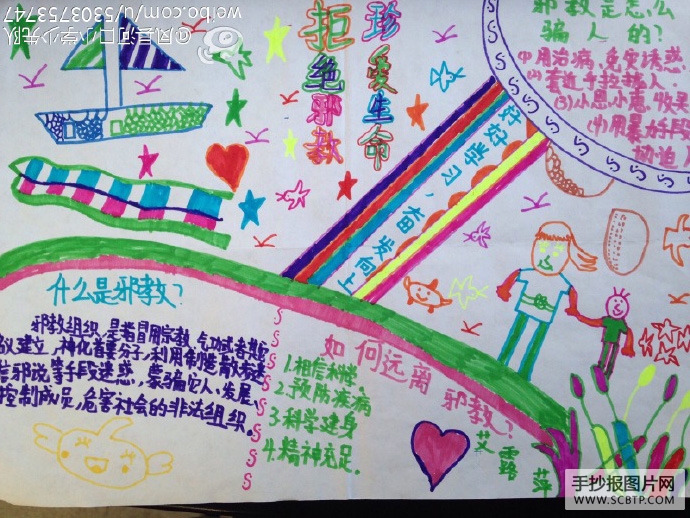 @凤县河口小学少先队
weibo.com/u/5303753747
珍爱生命
拒绝邪教
邪教是怎么
骗人的?
(1)用治病、免灾诱惑
(2)套近乎拉拢人.
(3)小恩小惠,收买
(4)用暴力手段
协迫
好好学习,奋发向上
什么是邪教?
邪教组织,是指冒用宗教、气功或者其他
义建立,神化首要分子,利用制造散布迷
信邪说等手段迷惑、蒙骗它人、发展、
控制成员,危害社会的非法组织。
如何远离邪教?
1.相信科学.
2.预防疾病
3.科学健身
4.精神充足.
艾露萍
手抄报图片网
WWW.SCBTP.COM